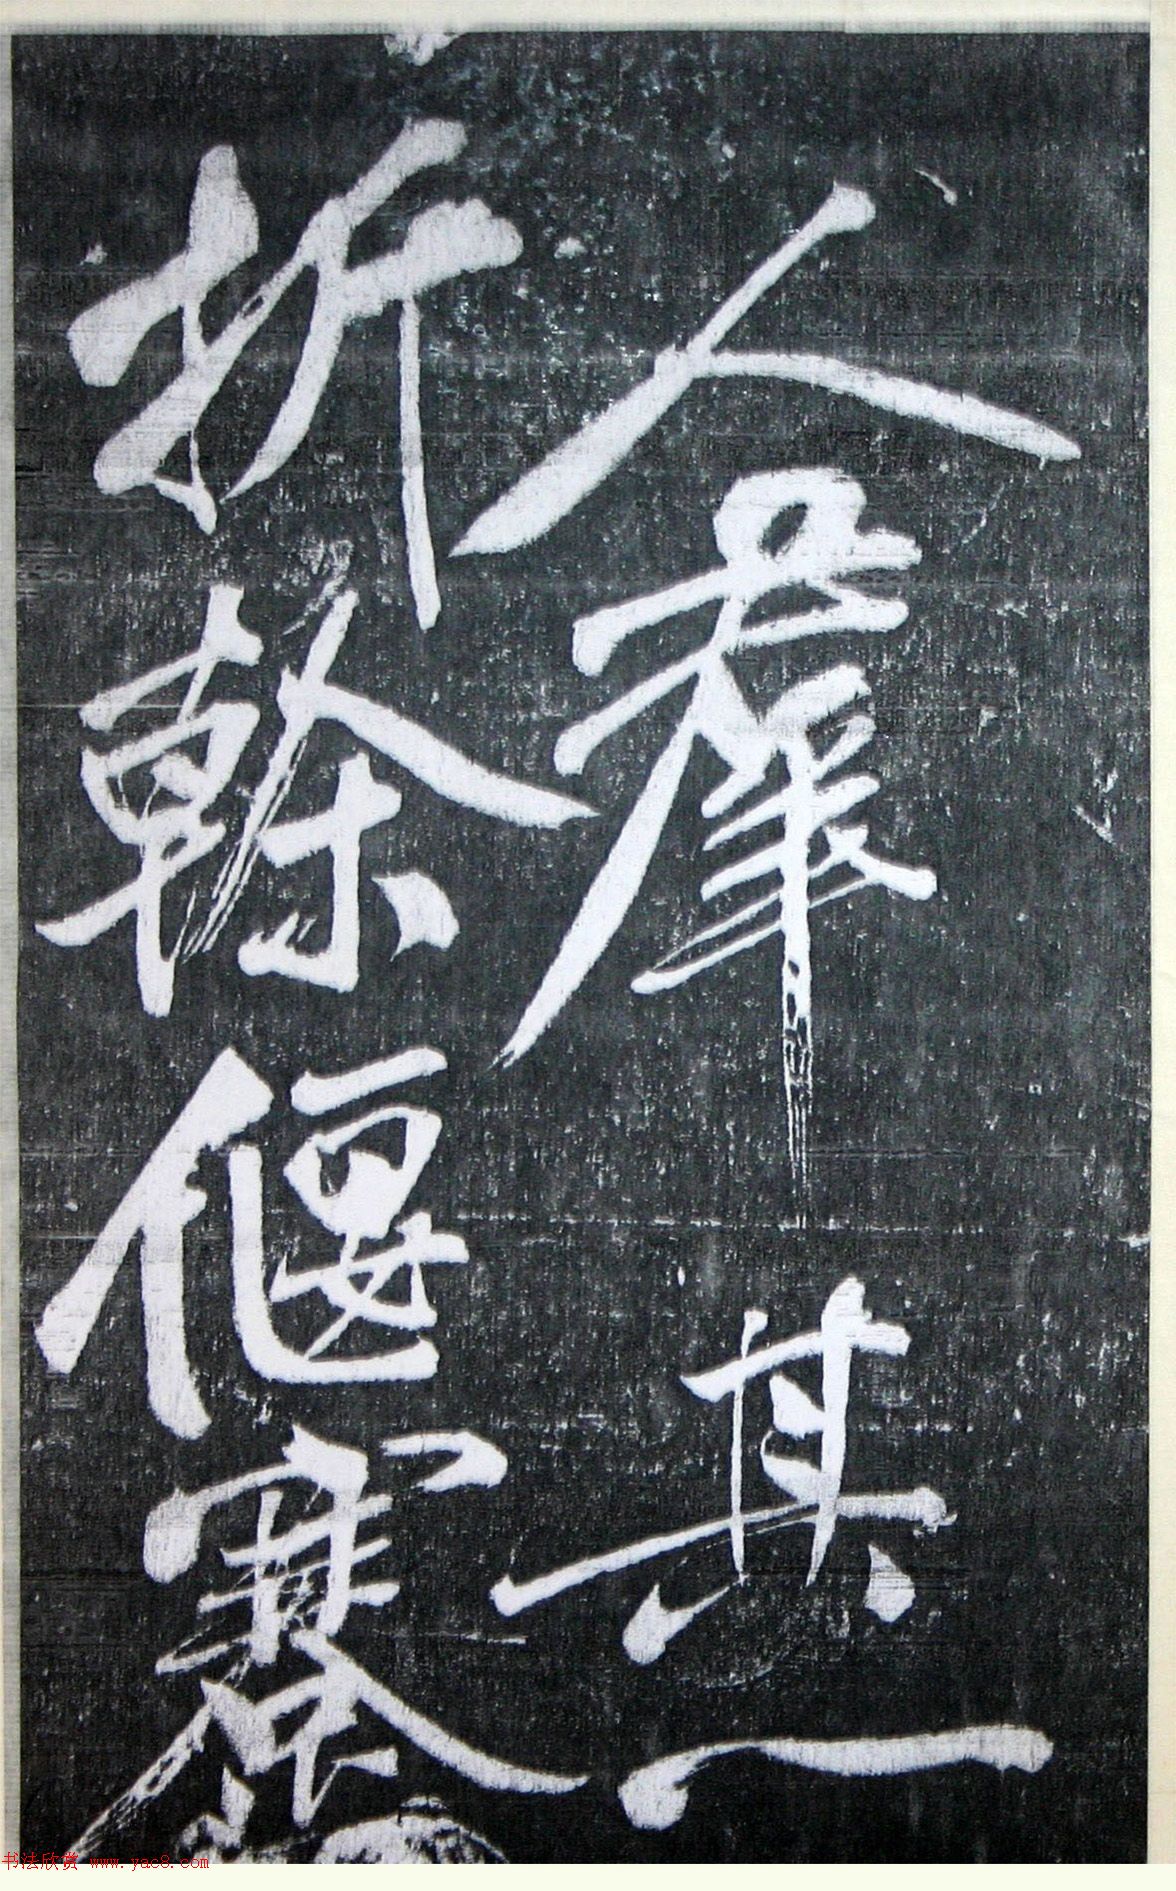 人羣其一
折榦偃蹇
书法欣赏 www.yac8.com